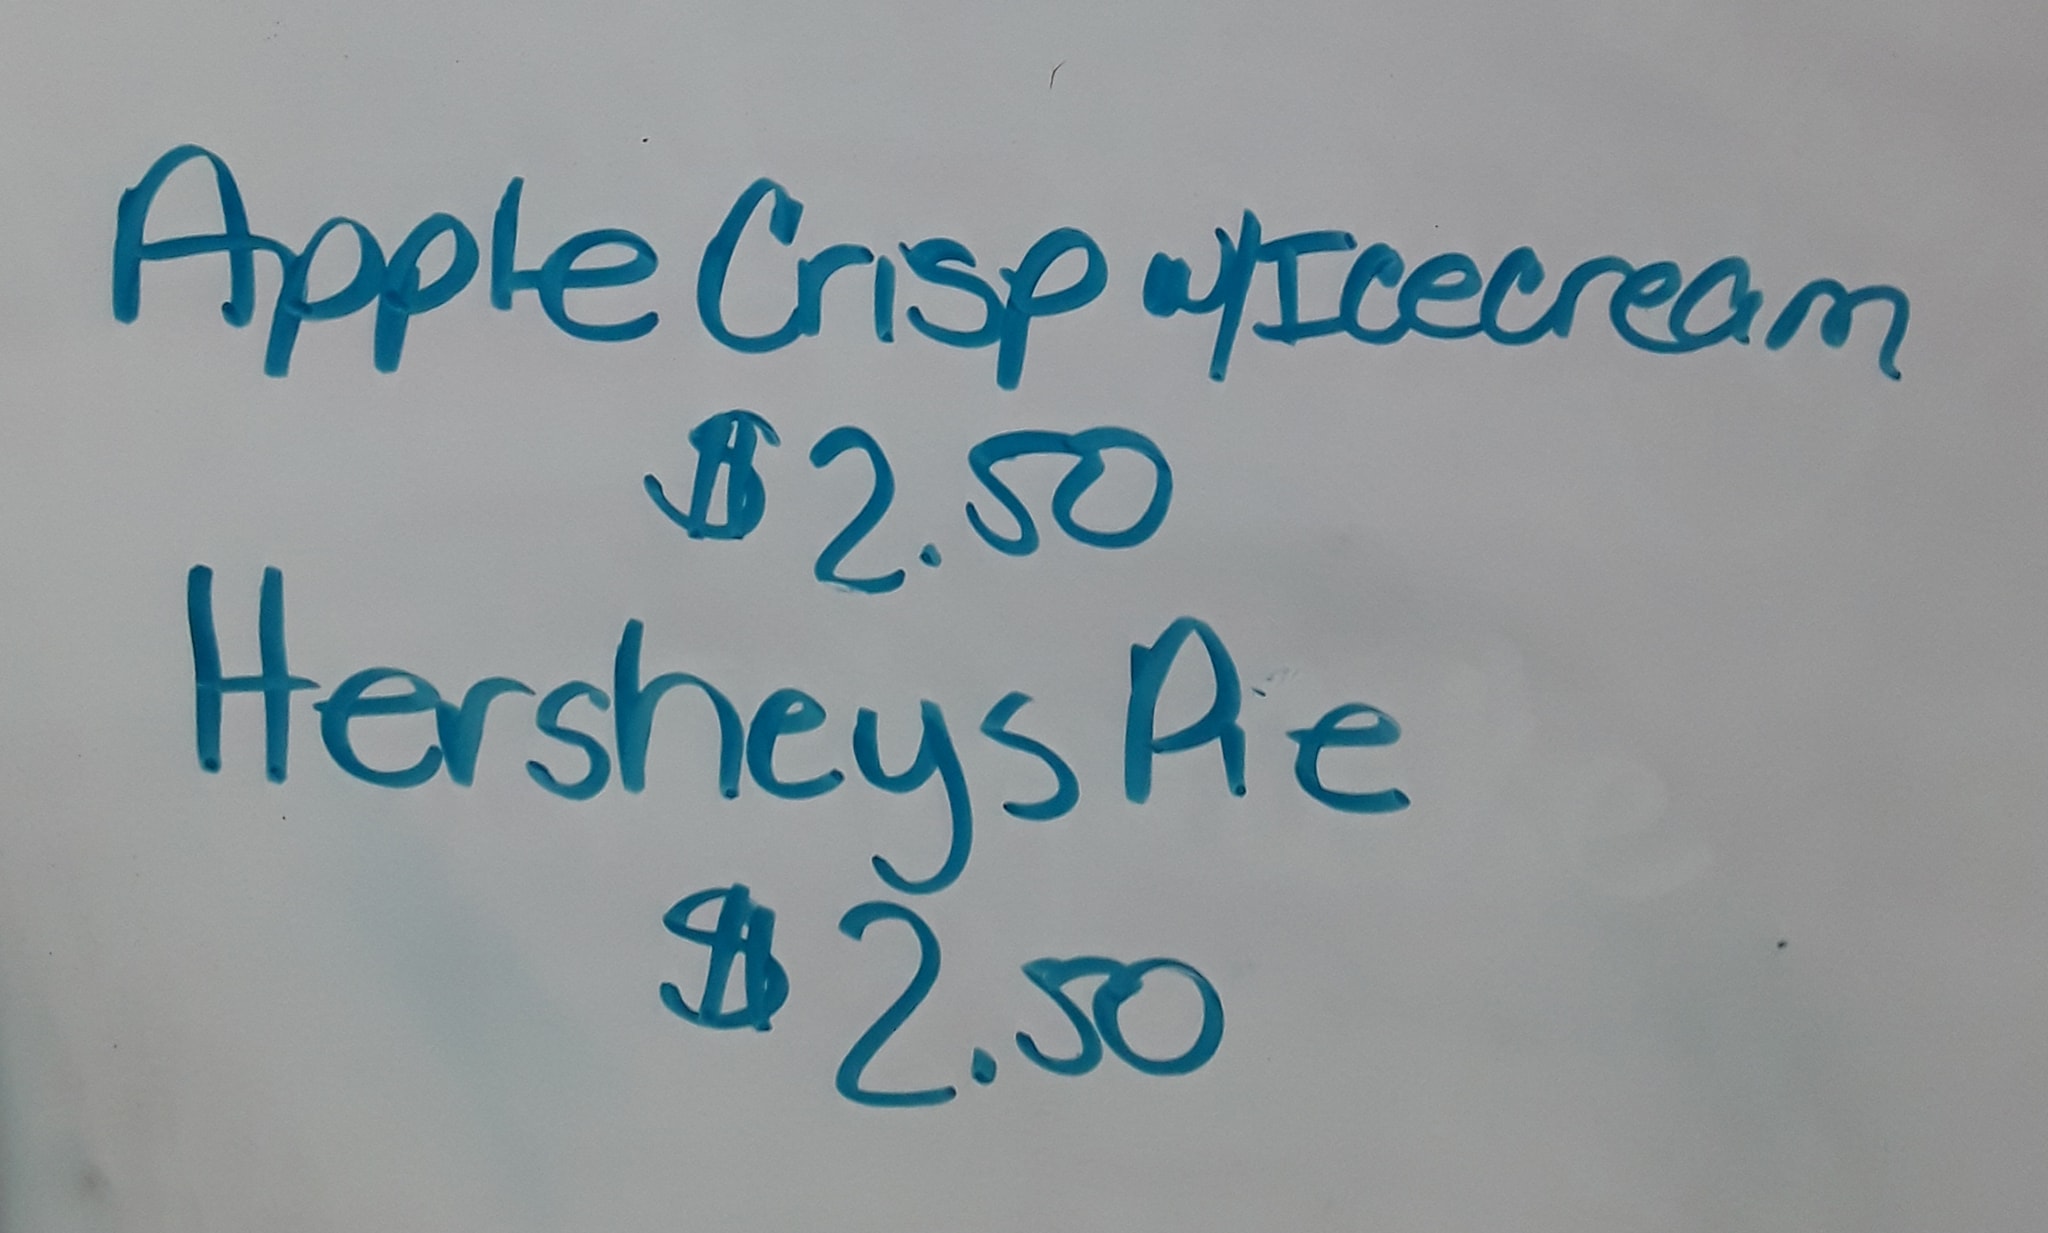 Apple Crisp w/Icecream
$2.50
Hersheys Pie
$2.50